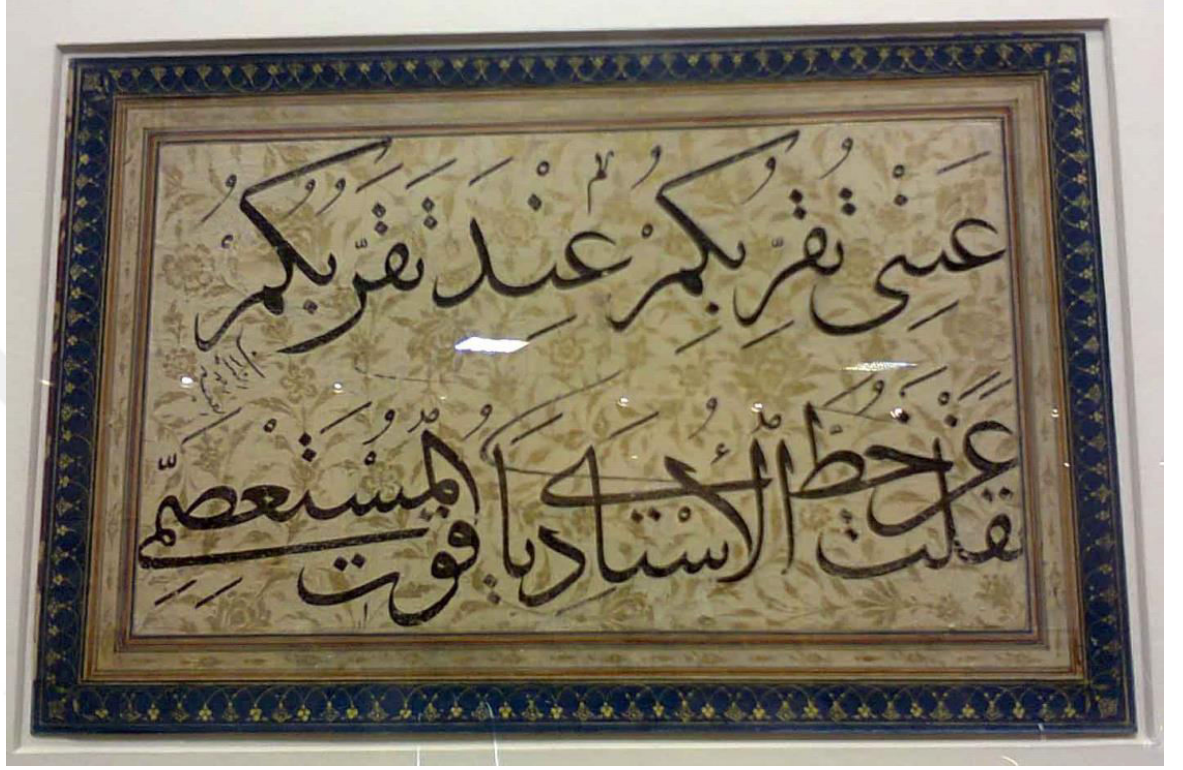 عنى تقربكم عند تقربكم
نقلت عن خط الاستادى ياقوت المستعصمى